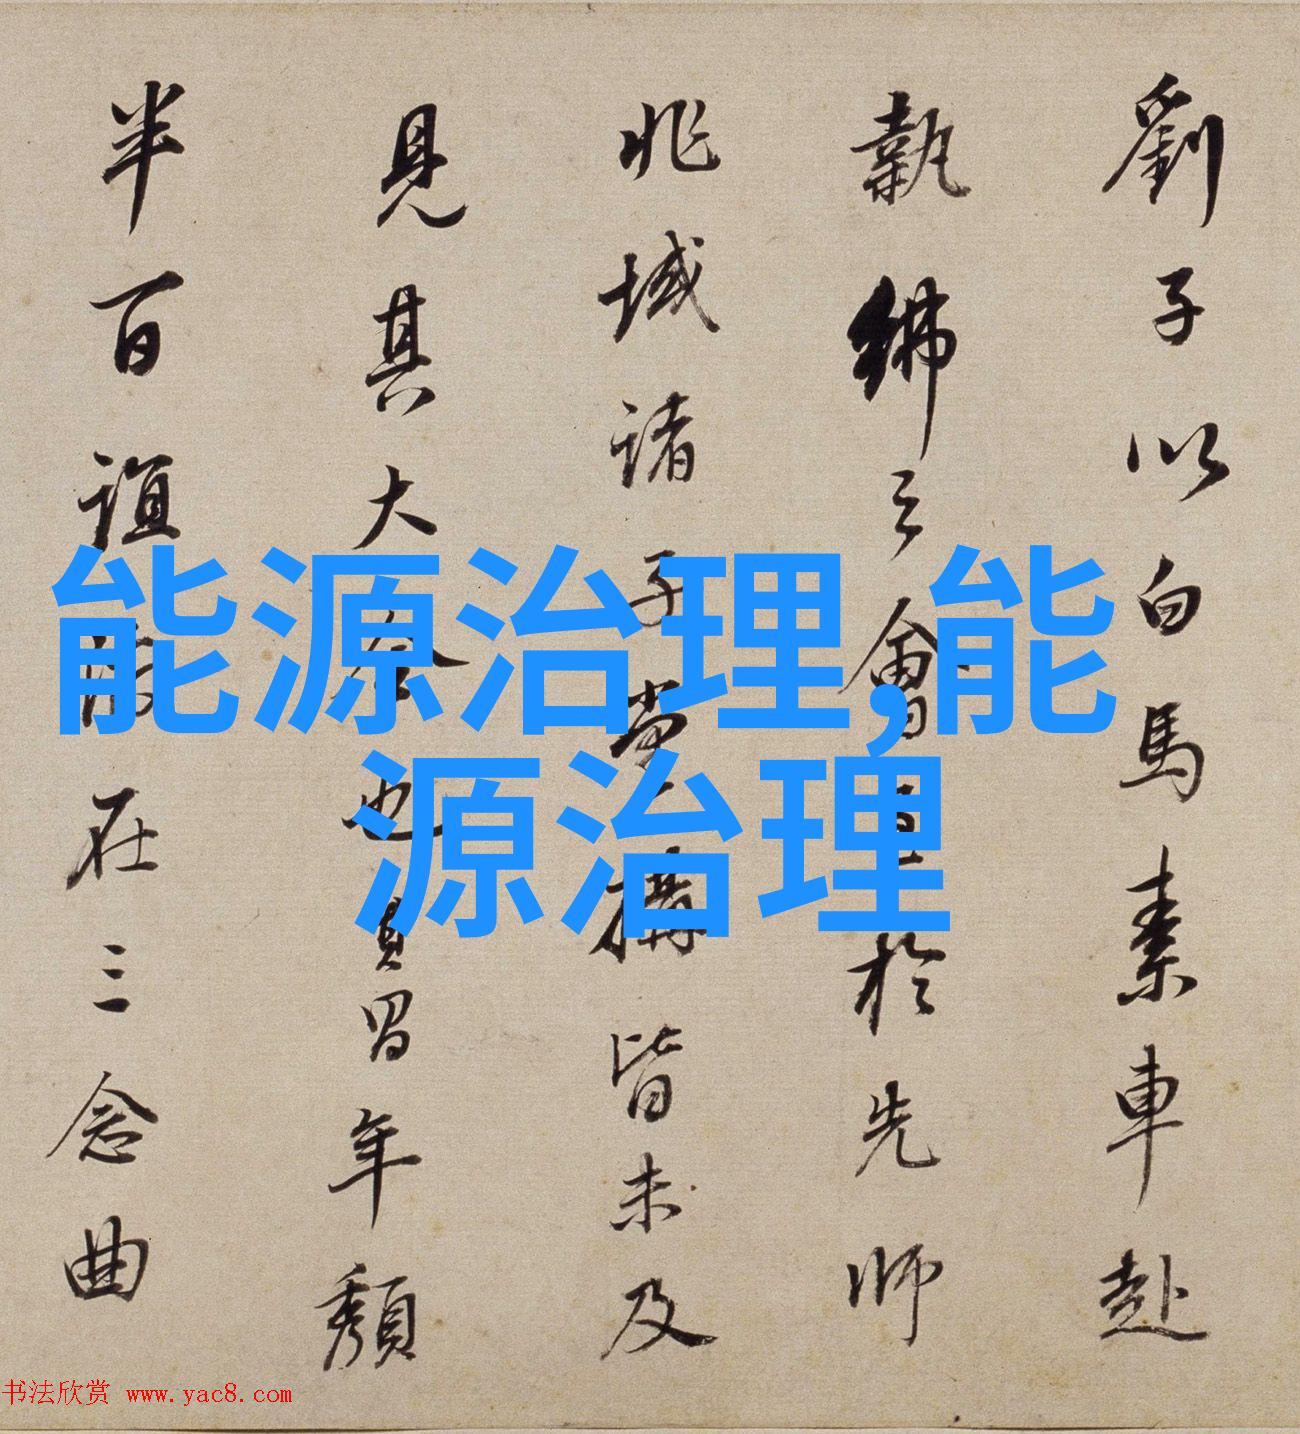 劉子以白馬素車赴
執紼之會葬於先師
兆域諸子堂構皆未及
見其大全也員冒年頽
半百誼在三念曲
能源治理,能
源治理
书法欣赏 www.yac8.com